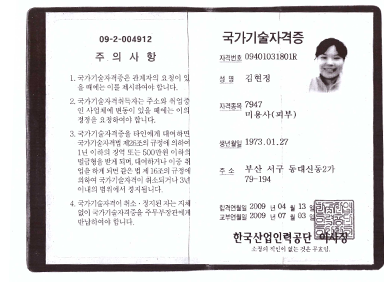 09-2-004912
주 의 사 항
1. 국가기술자격증은 관계자의 요청이 있
을 때에는 이를 제시하여야 합니다.
2. 국가기술자격취득자는 주소와 취업중
인 사업체에 변동이 있을 때에는 이의
정정을 요청하여야 합니다.
3. 국가기술자격증을 타인에게 대여하면
국가기술자격법 제26조의 규정에 의하여
1년 이하의 징역 또는 500만원 이하의
벌금형을 받게 되며, 대여하거나 이중 취
업을 하게 되면 같은 법 제16조의 규정에
의하여 국가기술자격이 취소되거나 3년
이내의 범위에서 정지됩니다.
4. 국가기술자격이 취소·정지된 자는 지체
없이 국가기술자격증을 주무부장관에게
반납하여야 합니다.
국가기술자격증
자격번호 09401031801R
성 명 김현정
자격종목 7947
미용사(피부)
생년월일 1973.01.27
주 소 부산 서구 동대신동2가
79-194
합격연월일 2009 년 04 월 13 일
교부연월일 2009 년 07 월 03 일
한국산업인력공단 이사장
소정의 직인이 없는 것은 무효임.